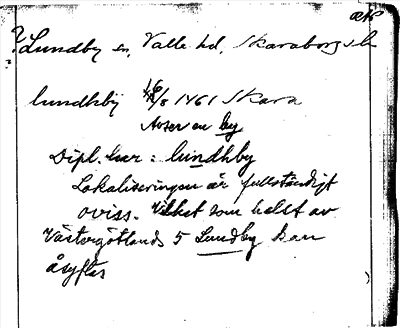 ?Lundby sn, Valle hd, Skaraborgs l
lundhby 1461 Skara
Avser en by
Dipl. har: lundhby
Lokaliseringen är fullständigt
oviss. Vilket som helst av
Västergötlands 5 Lundby kan
åsyftas